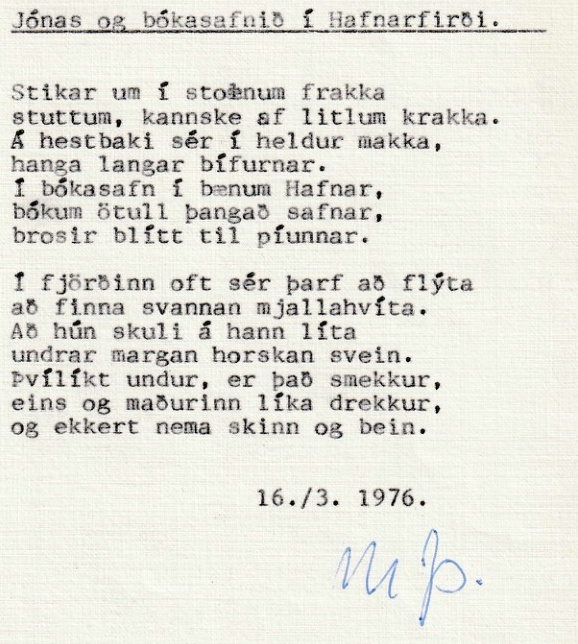 Jónas og bókasafnið í Hafnarfirði.
Stikar um í stolnum frakka
stuttum, kannske af litlum krakka.
Á hestbaki sér í heldur makka,
hanga langar bífurnar.
Í bókasafn í bænum Hafnar,
bókum ötull þangað safnar,
brosir blítt til píunnar.
Í fjörðinn oft sér þarf að flýta
að finna svannan mjallahvíta.
Að hún skuli á hann líta
undrar margan horskan svein.
Þvílíkt undur, er það smekkur,
eins og maðurinn líka drekkur,
og ekkert nema skinn og bein.
16./3. 1976.
M Þ.